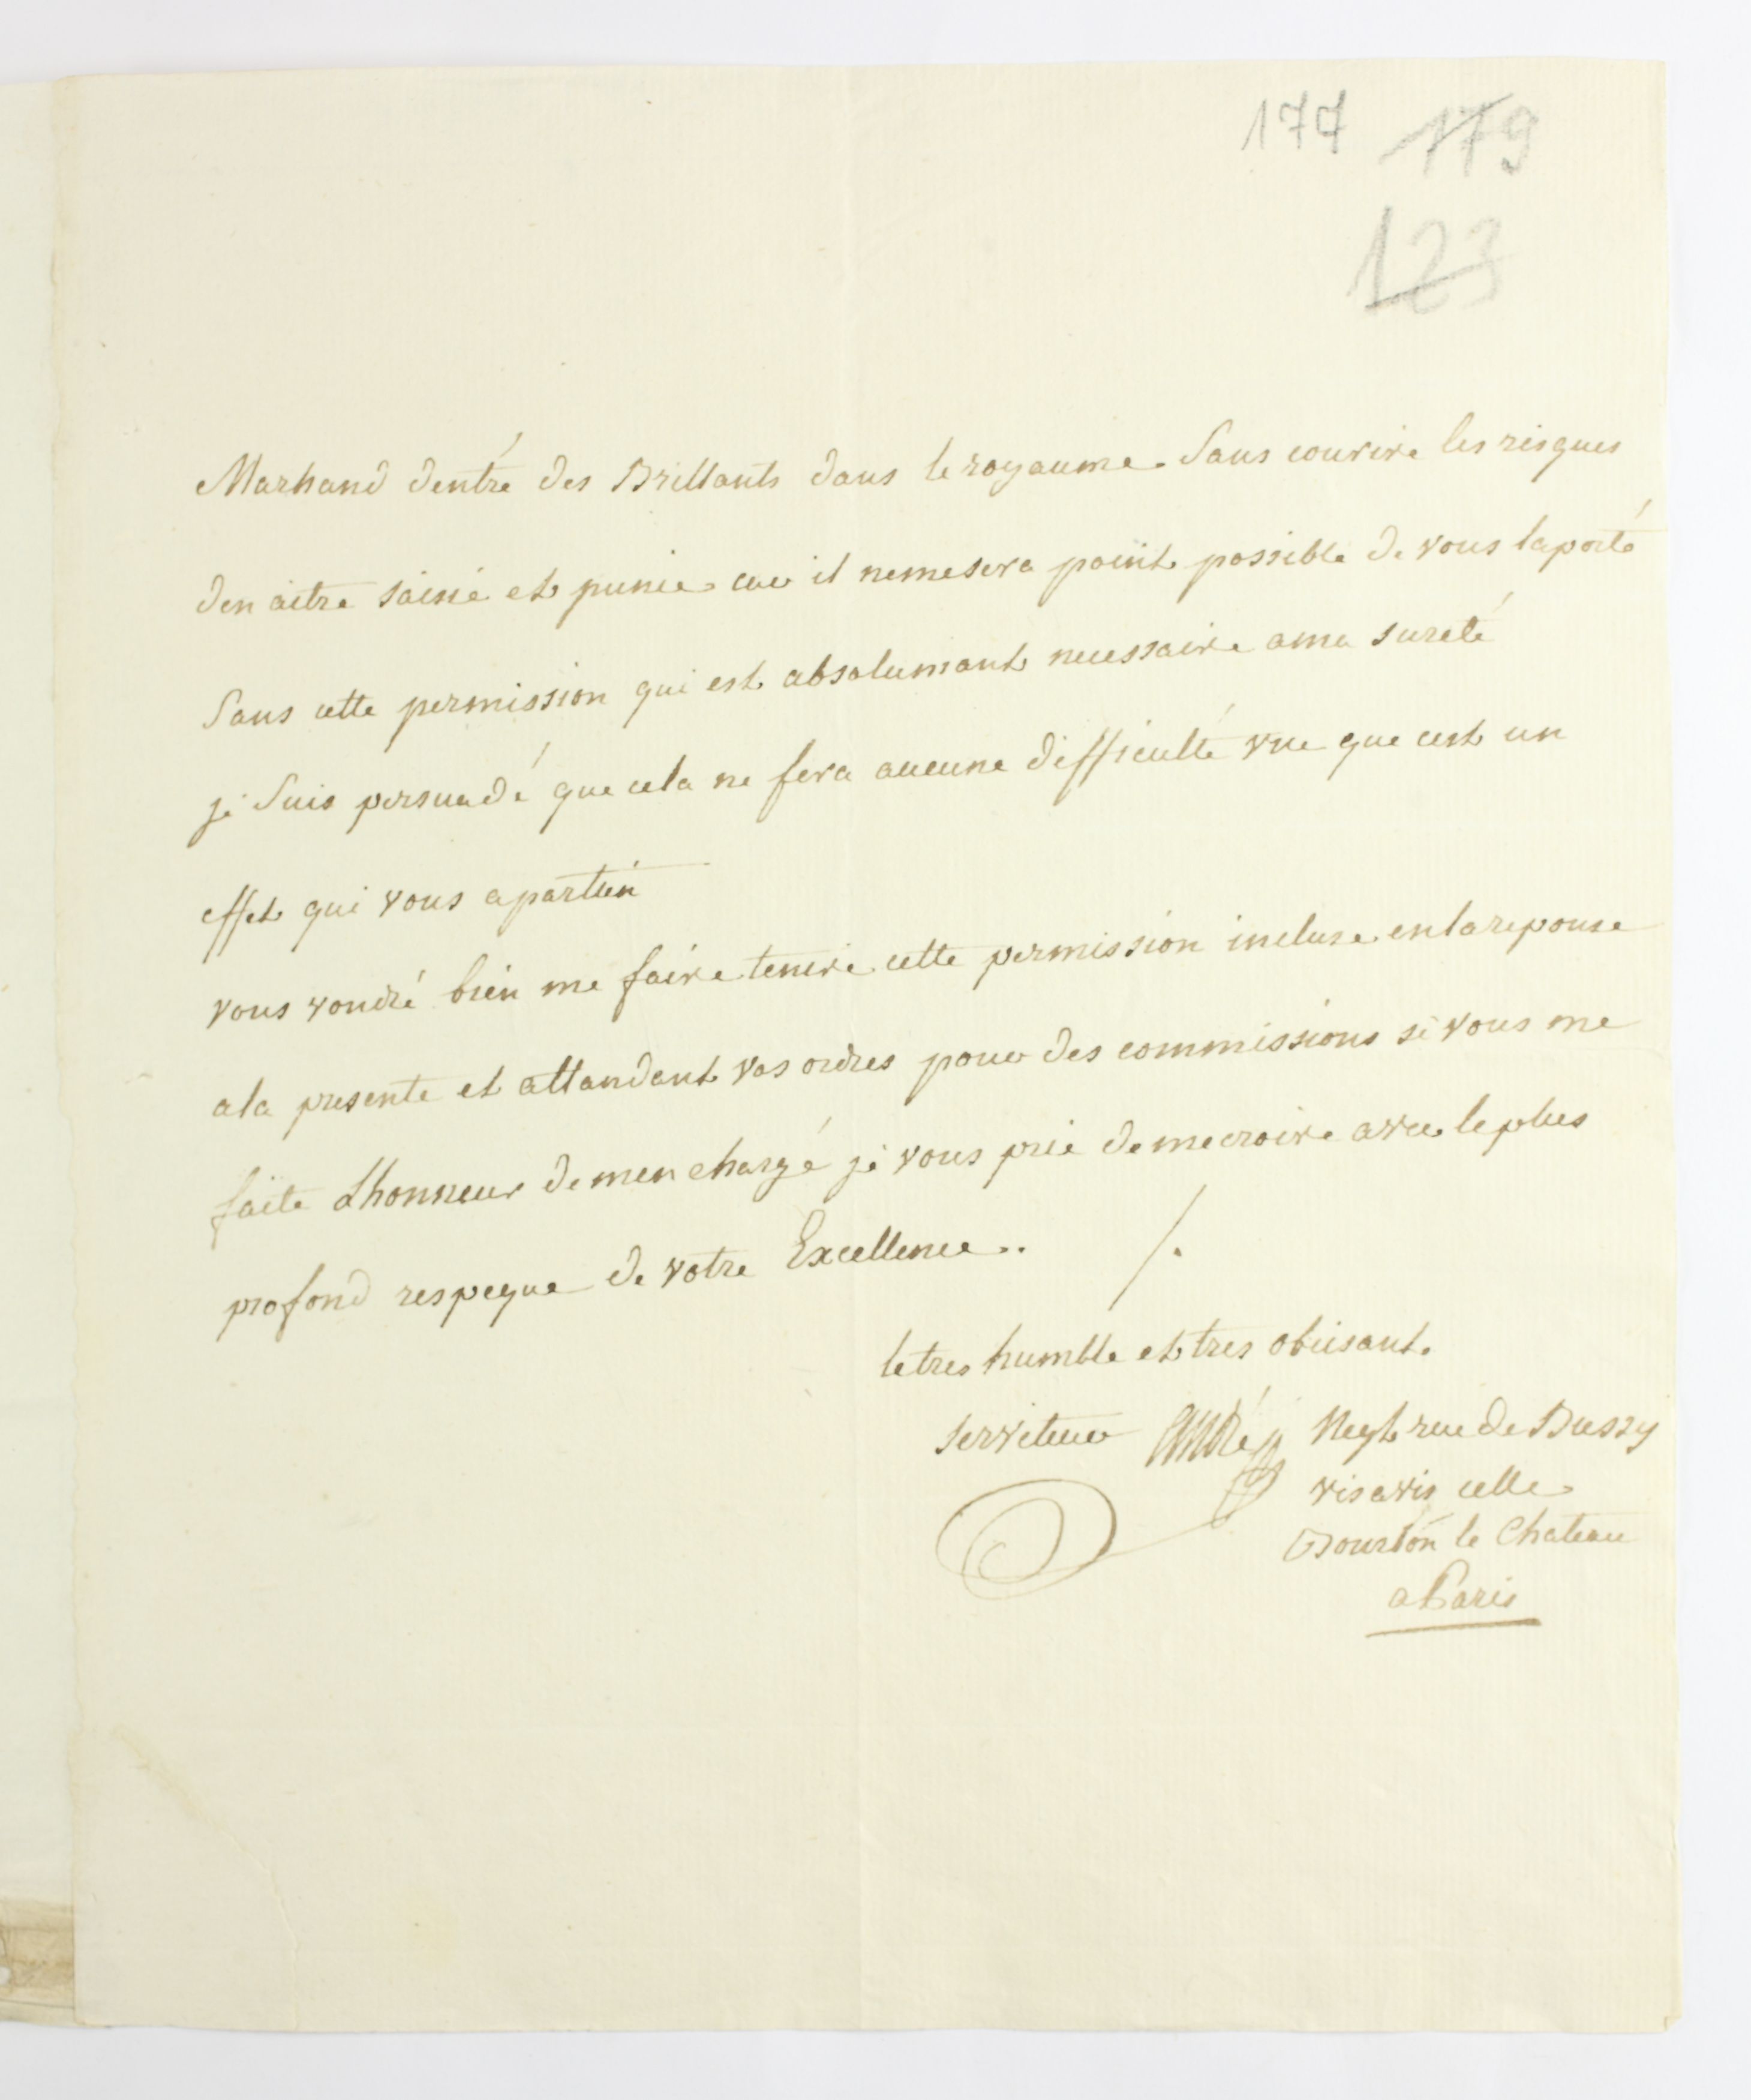 177 179
123
Marhand dentré des Brillants dans le royaume. Sans courire les risques
den aitre saisie et punie car il nemesera point possible de vous laporté
Sans cette permission qui est absolumant necessaire ama sureté
je Suis persuadé que cela ne fera aucune difficulté vue que cest un
effet qui vous apartien
vous voudré bien me faire tenire cette permission incluse enlareponse
ala presente et attandant vos ordres pour des commissions si vous me
faite Lhonneur de men chargé je vous prie demecroire avec leplus
profond respeque de votre Excellence. /.
letres humble et tres obeisant.
serviteur André Negt rue de Bussy
visavis celle
Bourbon le Chateau
a Paris